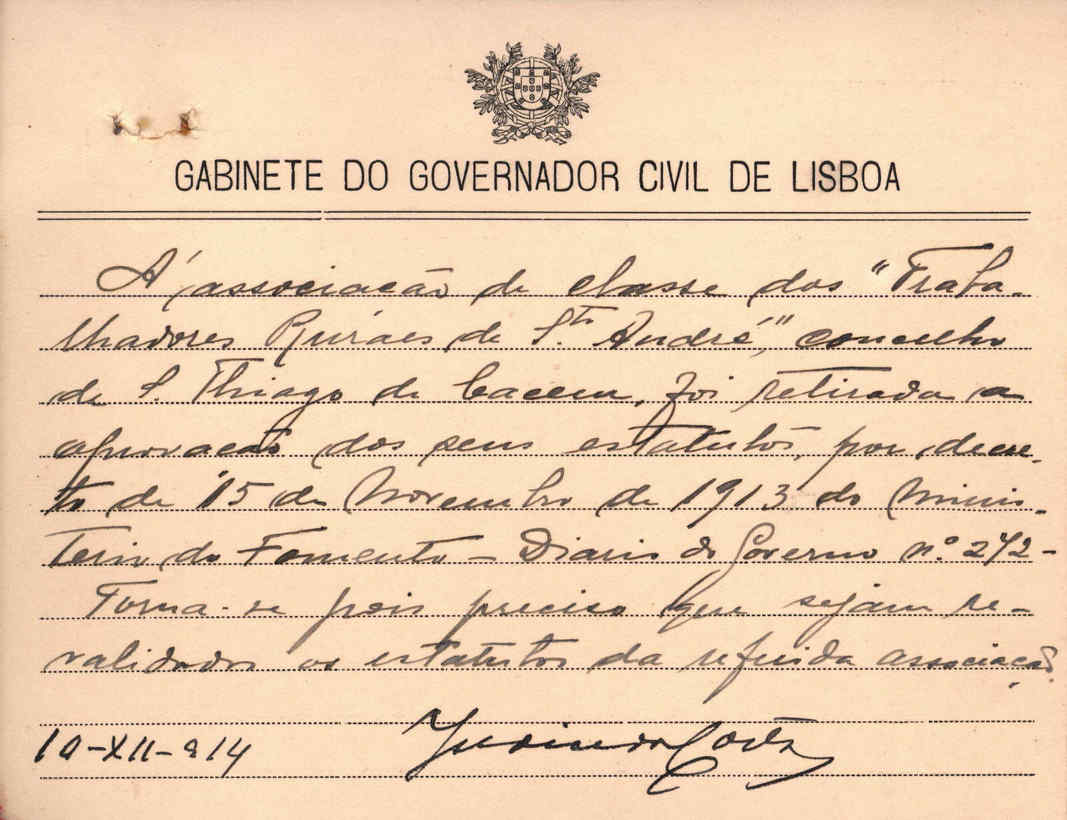 GABINETE DO GOVERNADOR CIVIL DE LISBOA
Á associação de classe dos "Traba-
lhadores Ruraes de S.to André", concelho
de S. Thiago de Cacem, foi retirada a
aprovacão dos seus estatutos, por decre-
to de 15 de Novembro de 1913 do Minis-
terio do Fomento - Diario do Governo n.º 272 -
Torna-se pois preciso que sejam re-
validados os estatutos da referida associação
10-XII-914
Costa